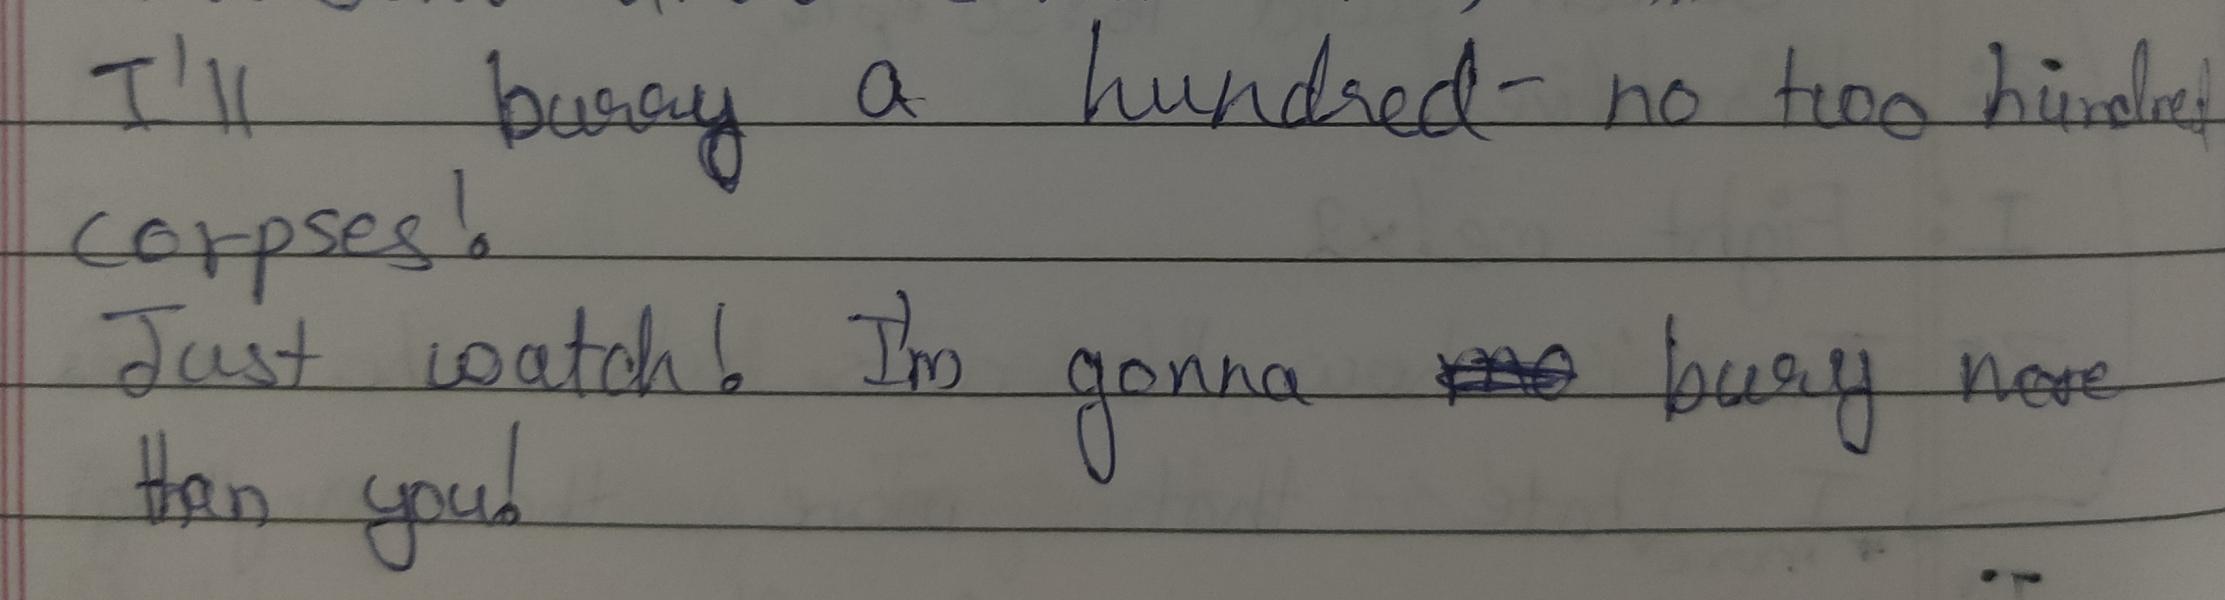 I'll buray a hundred- no two hundred
corpses!
Just watch! I'm gonna bury more
than you!